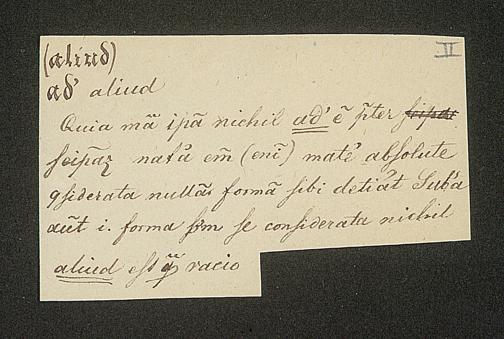 (aliud) II
ad' aliud
Quia mā ipā nichil ad' ē p̄ter
seipaz natᵃ em̄ (enī) matᵉ absolute
qsiderata nullā formā sibi detīat Subᵃ
aūt i. forma sm se considerata nichil
aliud est racio